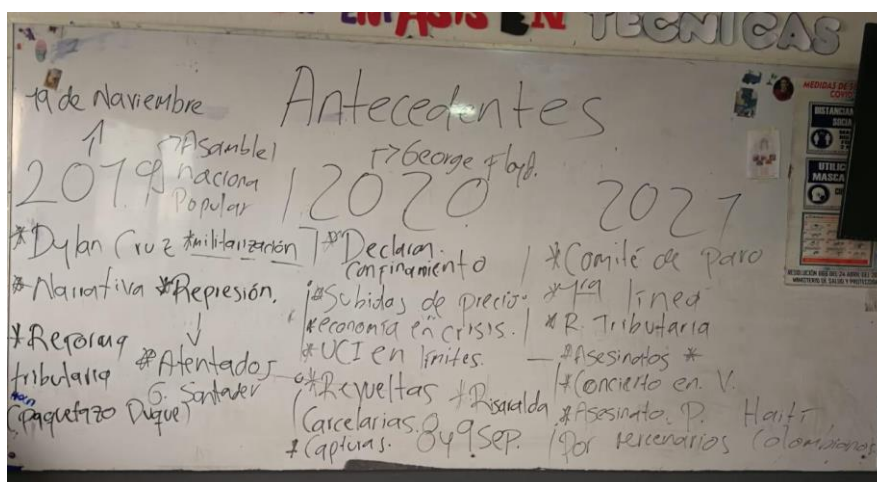 ENFASIS EN TECNICAS
Antecedentes
19 de Noviembre
2019
Asamblel
naciona
Popular
*Dylan Cruz *militarización
*Narrativa *Represión.
*Reforma
tributaria
(paquetazo Duque)
*Atentados
G. Santader
George Floyd.
2020
*Declaran.
confinamiento
*Subidas de precio.
*economía en crisis.
*UCI en limites.
*Revueltas
Carcelarias.
*Risaralda
*Capturas. 8y9 Sep.
2021
*Comité de paro
*1ra línea
*R. Tributaria
*Asesinatos *
*Concierto en. V.
*Asesinato. P. Haití
Por mercenarios Colombianos
MEDIDAS DE
COVID
DISTANCIAM
SOCIA
UTILIC
MASCA
MINISTERIO DE SALUD Y PROTECCIÓN